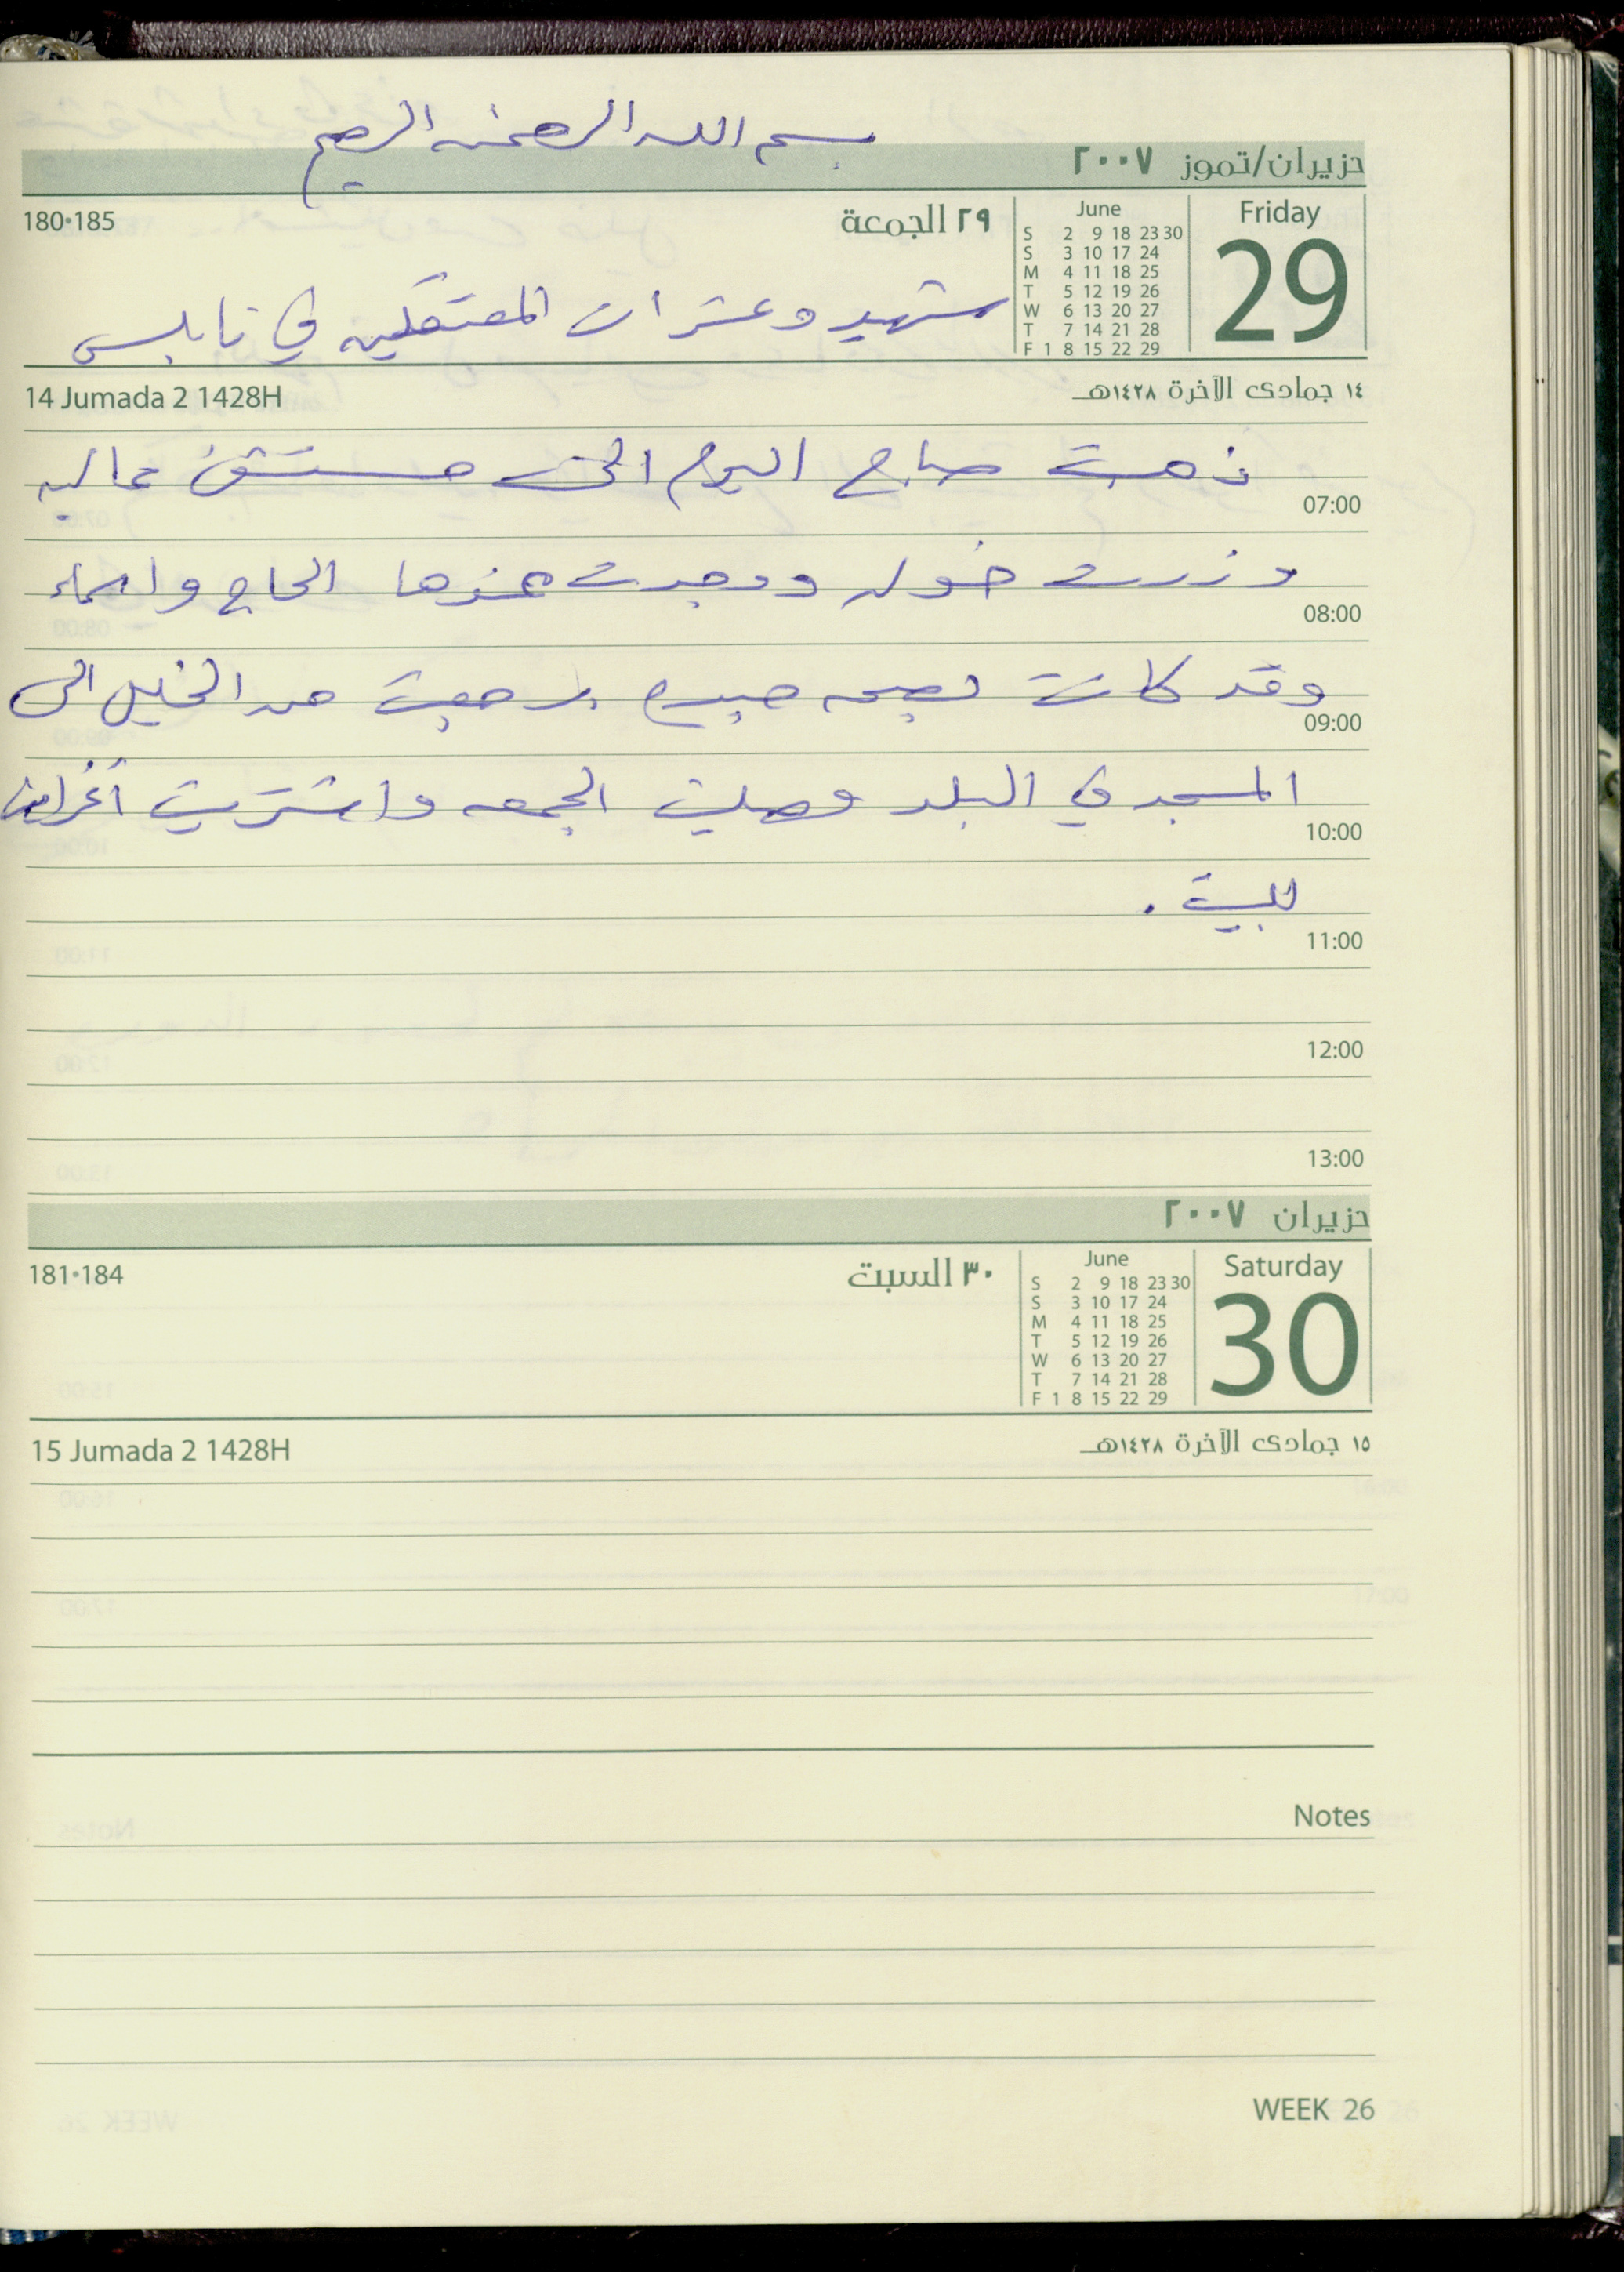 بسم الله الرحمن الرحيم
حزيران/تموز ٢٠٠٧
Friday
29
June
S 2 9 18 23 30
S 3 10 17 24
M 4 11 18 25
T 5 12 19 26
W 6 13 20 27
T 7 14 21 28
F 1 8 15 22 29
٢٩ الجمعة
180•185
شهيد وعشرات المعتقلين في نابلس
١٤ جمادى الآخرة ١٤٢٨هـ
14 Jumada 2 1428H
ذهبت صباح اليوم الى مستشفى عاليه
07:00
وزرت خوله ووجدت عندها الحاج واسماء
08:00
وقد كانت بصحه جيده رجعت من الخليل الى
09:00
المسجد في البلد وصليت الجمعه واشتريت أغراض
10:00
للبيت .
11:00
12:00
13:00
حزيران ٢٠٠٧
Saturday
30
June
S 2 9 18 23 30
S 3 10 17 24
M 4 11 18 25
T 5 12 19 26
W 6 13 20 27
T 7 14 21 28
F 1 8 15 22 29
٣٠ السبت
181•184
١٥ جمادى الآخرة ١٤٢٨هـ
15 Jumada 2 1428H
Notes
WEEK 26